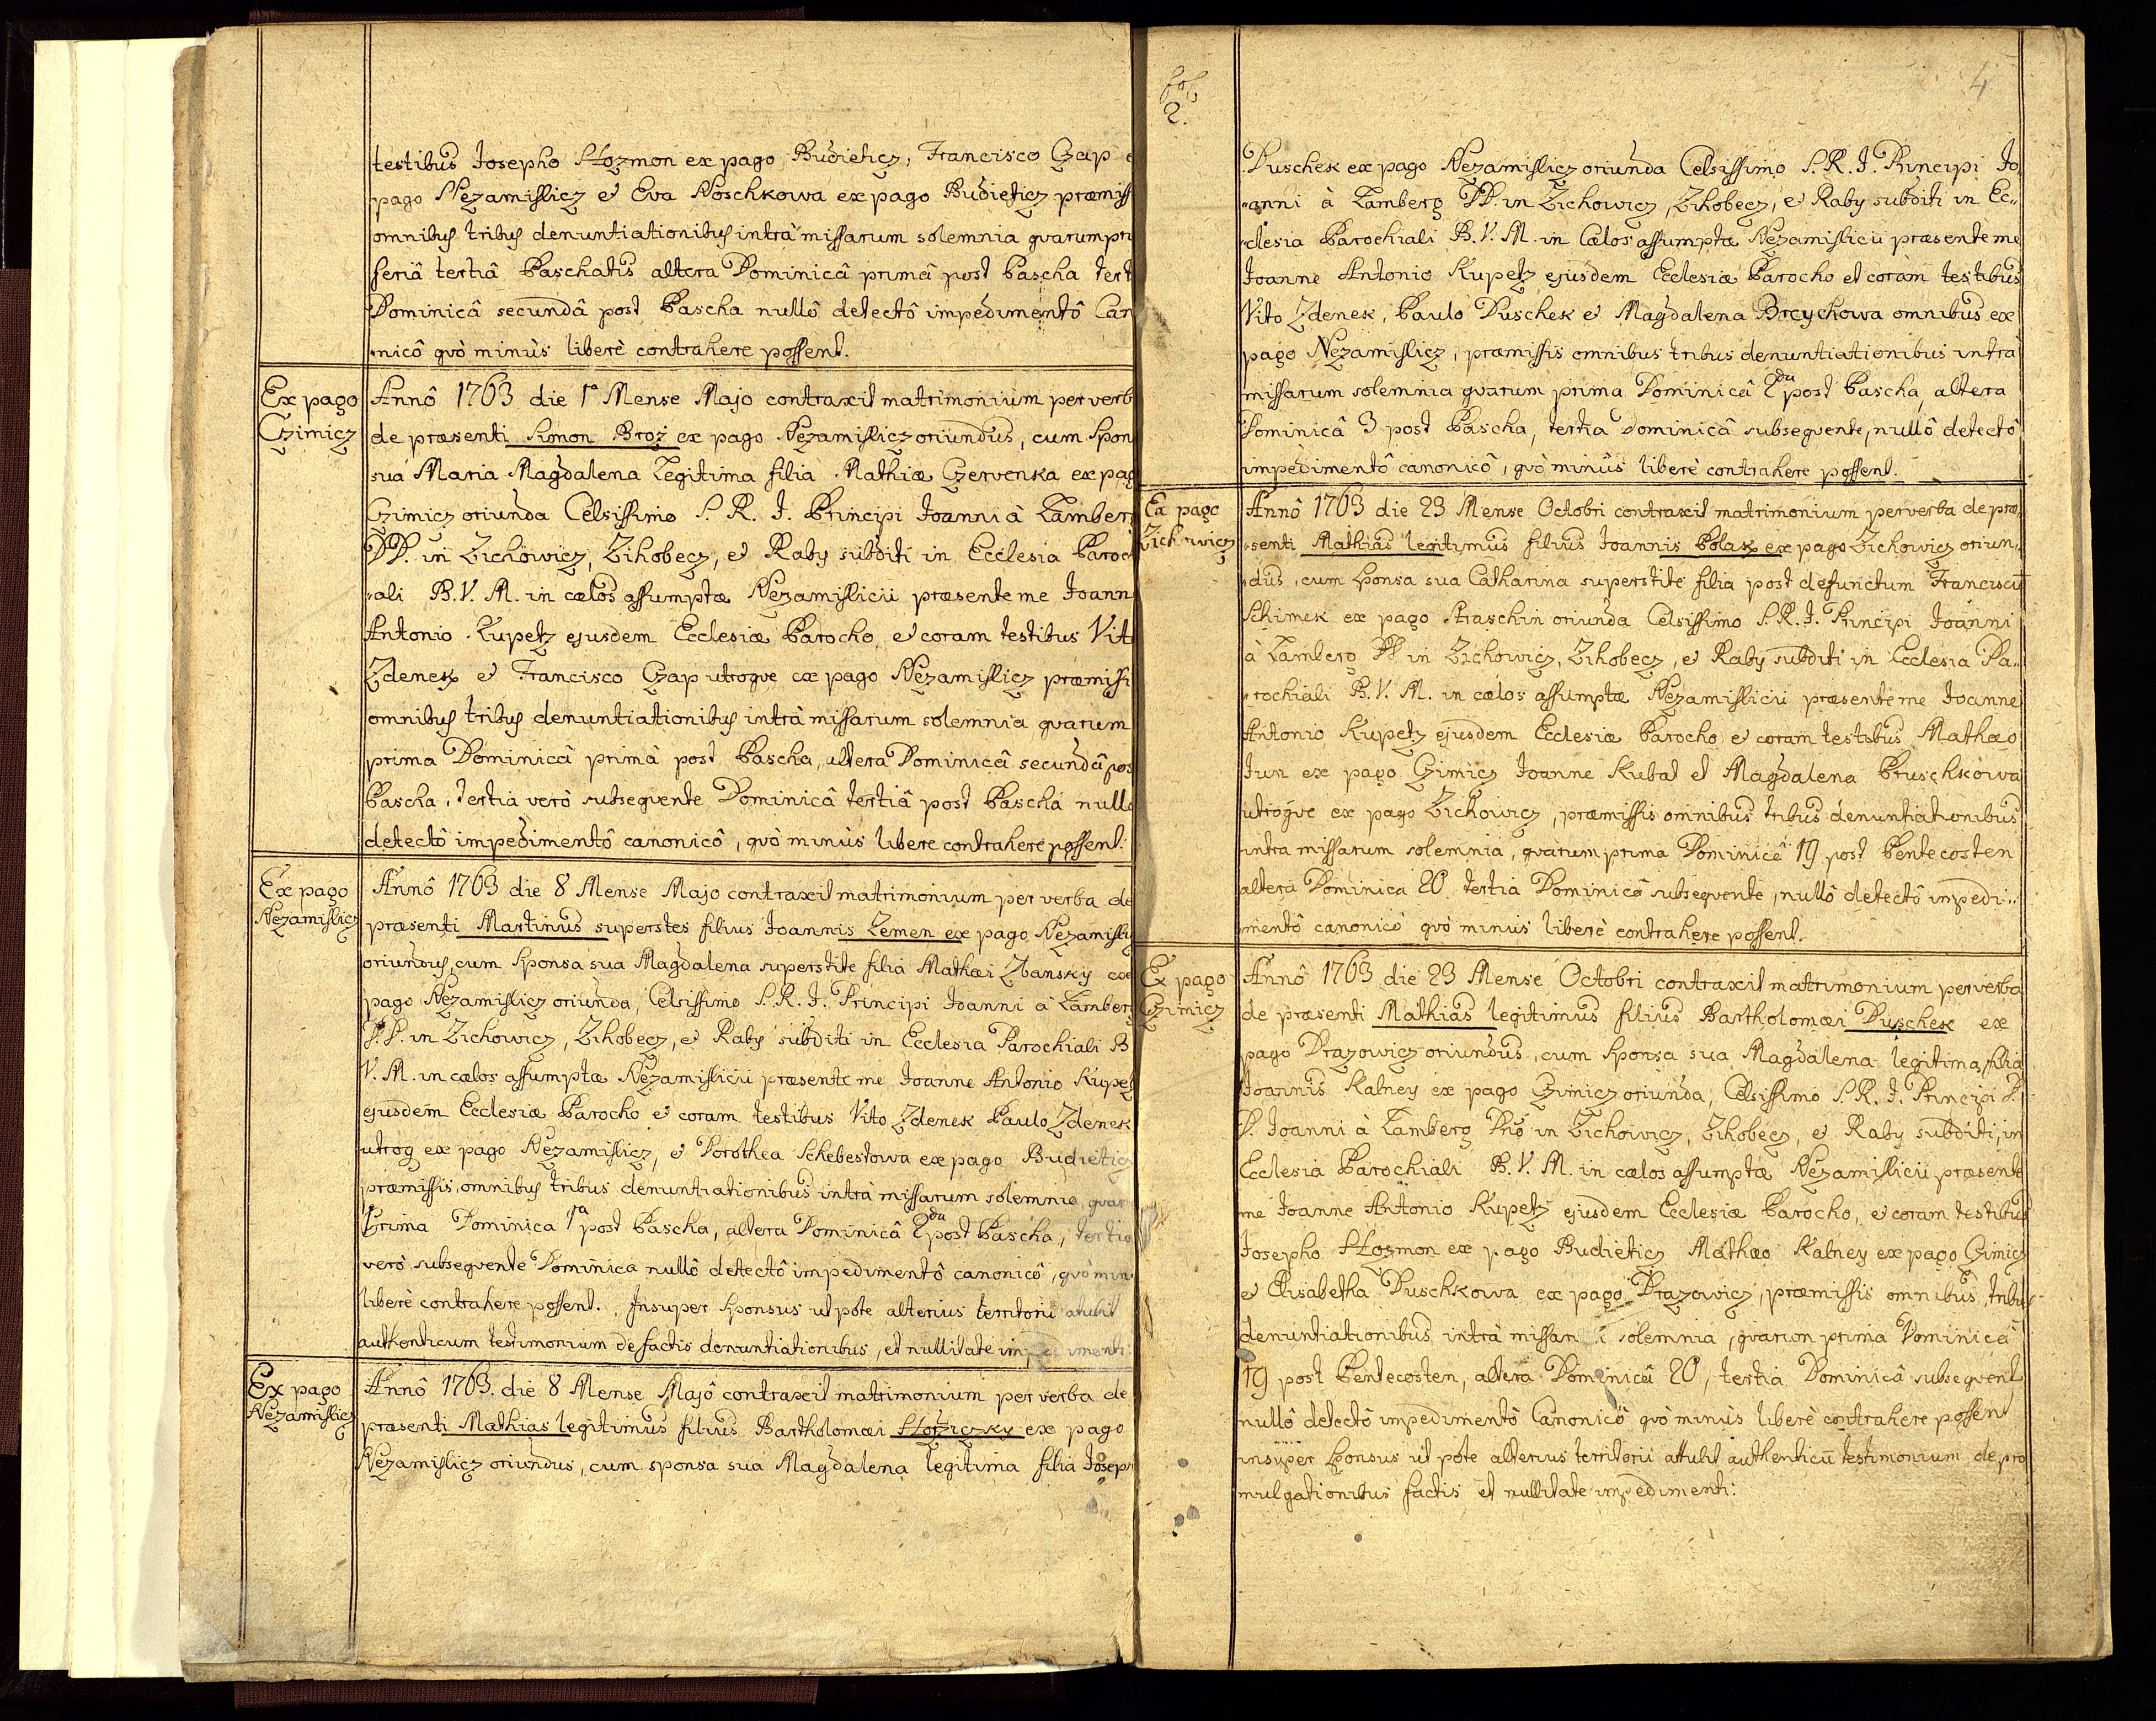 testibus Josepho Hozmon ex pago Budieticz, Francisco Czap e
pago Nezamislicz et Eva Noschkowa ex pago Budieticz præmiss
omnibus tribus denuntiationibus intrà missarum solemnia qvarum pri
feriâ tertiâ Paschatis altera Dominicâ primâ post Pascha tert
Dominicâ secundâ post Pascha nullô detectô impedimentô Can
nicô qvò minùs liberè contrahere possent.
Ex pago
Czimicz
Annô 1763 die 1ª Mense Majo contraxit matrimonium per verb
de præsenti Simon Broz ex pago Nezamislicz oriundus, cum Spon
sua Maria Magdalena Legitima filia Mathiæ Czervenka ex pag
Czimicz oriunda Celsissimo S. R. I. Principi Joanni à Lamberg
DD. in Zichowicz, Zihobecz, et Raby subditi in Ecclesia Paroch
ali B. V. M. in cælos assumptæ Nezamislicii præsente me Joann
Antonio Kupetz ejusdem Ecclesiæ Parocho, et coram testibus Vito
Zdenek et Francisco Czap utroqve ex pago Nezamislicz præmissi
omnibus tribus denuntiationibus intrà missarum solemnia qvarum
prima Dominicâ primâ post Pascha, altera Dominicâ secundâ pos
Pascha, tertia verò subseqvente Dominicâ tertiâ post Pascha nullo
detectô impedimentô canonicô, qvò minùs libere contrahere possent.
Ex pago
Nezamislicz
Annô 1763 die 8 Mense Majo contraxit matrimonium per verba de
præsenti Martinus superstes filius Joannis Zemen ex pago Nezamislicz
oriundus, cum Sponsa sua Magdalena superstite filia Mathæi Zbansky ex
pago Nezamislicz oriunda, Celsissimo S. R. I. Principi Joanni à Lamberg
in Zichowicz, Zihobecz, et Raby subditi in Ecclesia Parochiali B
V. M. in cælos assumptæ Nezamislicii præsente me Joanne Antonio Kupetz
ejusdem Ecclesiæ Parocho et coram testibus Vito Zdenek Paulo Zdenek
utroq ex pago Nezamislicz, et Dorothea Schebestowa ex pago Budieticz
præmissis omnibus tribus denuntiationibus intrà missarum solemnia, qvar
Prima Dominica 1ª post Pascha, altera Dominicâ 2da post Pascha, tertia
verò subseqvente Dominica nullô detectô impedimentô canonicô, qvò min
liberè contrahere possent. Insuper Sponsus ut pote alterius territorii attulit
authenticum testimonium de factis denuntiationibus, et nullitate impedimenti.
Ex pago
Nezamislicz
Annô 1763. die 8 Mense Majô contraxit matrimonium per verba de
præsenti Mathias legitimus filius Bartholomæi ex pago
Nezamislicz oriundus, cum sponsa sua Magdalena legitima filia Joseph
fol.
2.
4
Duschek ex pago Nezamislicz oriunda Celsissimo S. R. I. Principi Jo
anni à Lamberg DD. in Zichowicz, Zihobecz, et Raby subditi in Ec
clesia Parochiali B. V. M. in Cælos assumptæ Nezamislicii præsente me
Joanne Antonio Kupetz ejusdem Ecclesiæ Parocho et coram testibus
Vito Zdenek, Paulo Duschek et Magdalena Breychowa omnibus ex
pago Nezamislicz, præmissis omnibus tribus denuntiationibus intrà
missarum solemnia qvarum prima Dominicâ 2da post Pascha, altera
Dominicâ 3 post Pascha, tertia Dominicâ subseqvente, nullô detectô
impedimentô canonicô, qvò minùs liberè contrahere possent.
Ex pago
Zichowicz
Annô 1763 die 23 Mense Octobri contraxit matrimonium per verba de præ
senti Mathias legitimus filius Joannis Polak ex pago Zichowicz oriun
dus, cum Sponsa sua Catharina superstite filia post defunctum Franciscu
Schimek ex pago Straschin oriunda Celsissimo S. R. I. Principi Joanni
à Lamberg in Zichowicz, Zihobecz, et Raby subditi in Ecclesia Pa
rochiali B. V. M. in cælos assumptæ Nezamislicii præsente me Joanne
Antonio Kupetz ejusdem Ecclesiæ Parocho et coram testibus Mathæo
Jun ex pago Czimicz Joanne Kubat et Magdalena Pruschkowa
utroqve ex pago Zichowicz, præmissis omnibus tribus denuntiationibus
intra missarum solemnia, qvarum prima Dominicâ 19 post Pentecosten
altera Dominica 20 tertia Dominicâ subseqvente, nullô detectô impedi
mentô canonicô qvò minùs liberè contrahere possent.
Ex pago
Czimicz
Annô 1763 die 23 Mense Octobri contraxit matrimonium per verba
de præsenti Mathias legitimus filius Bartholomæi Duschek ex
pago Drazowicz oriundus, cum Sponsa sua Magdalena legitima filia
Joannis Kalney ex pago Czimicz oriunda, Celsissimo S. R. I. Principi D.
D. Joanni à Lamberg Dno in Zichowicz, Zihobecz, et Raby subditi, in
Ecclesia Parochiali B. V. M. in cælos assumptæ Nezamislicii præsente
me Joanne Antonio Kupetz ejusdem Ecclesiæ Parocho, et coram testibus
Josepho Hozmon ex pago Budieticz Mathæo Kalney ex pago Czimicz
et Elisabetha Duschkowa ex pago Drazowicz, præmissis omnibus tribus
denuntiationibus intrà solemnia, qvarum prima Dominicâ
19 post Pentecosten, altera Dominicâ 20, tertia Dominicâ subseqvent
nullô detectô impedimentô Canonicô qvò minùs liberè contrahere possent
insuper Sponsus ut pote alterius territorii attulit authenticū testimonium de pro
mulgationibus factis et nullitate impedimenti: